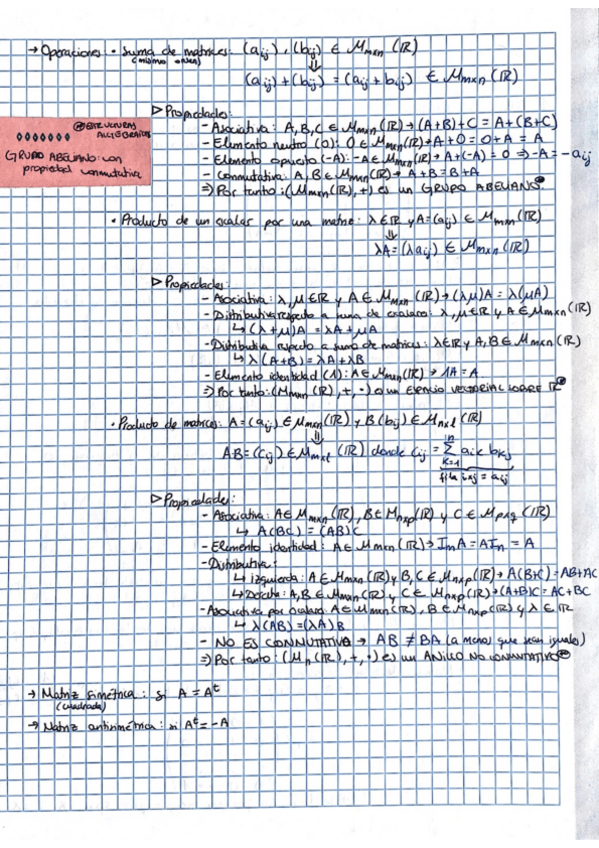 → Operaciones • Suma de matrices: (aij), (bij) ∈ Mmxn (IR)
(mismo orden)
⇓
(aij) + (bij) = (aij + bij) ∈ Mmxn (IR)
▷ Propiedades:
- Asociativa: A, B, C ∈ Mmxn (IR) → (A+B)+C = A+(B+C)
- Elemento neutro (0): 0 ∈ Mmxn (IR) → A+0 = 0+A = A
- Elemento opuesto (-A): -A ∈ Mmxn (IR) → A+(-A) = 0 ⇒ -A = -aij
- Conmutativa: A, B ∈ Mmxn (IR) → A+B = B+A
⇒ Por tanto: (Mmxn (IR), +) es un GRUPO ABELIANO
ESTRUCTURAS
ALGEBRAICAS
GRUPO ABELIANO: con
propiedad conmutativa
• Producto de un escalar por una matriz: λ ∈ IR y A = (aij) ∈ Mmxn (IR)
⇓
λA = (λaij) ∈ Mmxn (IR)
▷ Propiedades:
- Asociativa: λ, μ ∈ IR y A ∈ Mmxn (IR) → (λμ)A = λ(μA)
- Distributiva respecto a suma de escalares: λ, μ ∈ IR y A ∈ Mmxn (IR)
↳ (λ+μ)A = λA + μA
- Distributiva respecto a suma de matrices: λ ∈ IR y A, B ∈ Mmxn (IR)
↳ λ(A+B) = λA + λB
- Elemento identidad (1): A ∈ Mmxn (IR) → 1A = A
⇒ Por tanto: (Mmxn (IR), +, •) es un ESPACIO VECTORIAL SOBRE IR
• Producto de matrices: A = (aij) ∈ Mmxn (IR) y B (bij) ∈ Mnxl (IR)
⇓
AB = (cij) ∈ Mmxl (IR) donde cij = Σ (k=1, n) aik bkj
fila i x j = aij
▷ Propiedades:
- Asociativa: A ∈ Mmxn (IR), B ∈ Mnxp (IR) y C ∈ Mpxq (IR)
↳ A(BC) = (AB)C
- Elemento identidad: A ∈ Mmxn (IR) → ImA = AIn = A
- Distributiva:
↳ izquierda: A ∈ Mmxn (IR) y B, C ∈ Mnxp (IR) → A(B+C) = AB+AC
↳ Derecha: A, B ∈ Mmxn (IR) y C ∈ Mnxp (IR) → (A+B)C = AC+BC
- Asociativa por escalares: A ∈ Mmxn (IR), B ∈ Mnxp (IR) y λ ∈ IR
↳ λ(AB) = (λA)B
- NO ES CONMUTATIVO → AB ≠ BA (a menos que sean iguales)
⇒ Por tanto: (Mn (IR), +, •) es un ANILLO NO CONMUTATIVO
→ Matriz simétrica: si A = Aᵗ
(cuadrada)
→ Matriz antisimétrica: si Aᵗ = -A